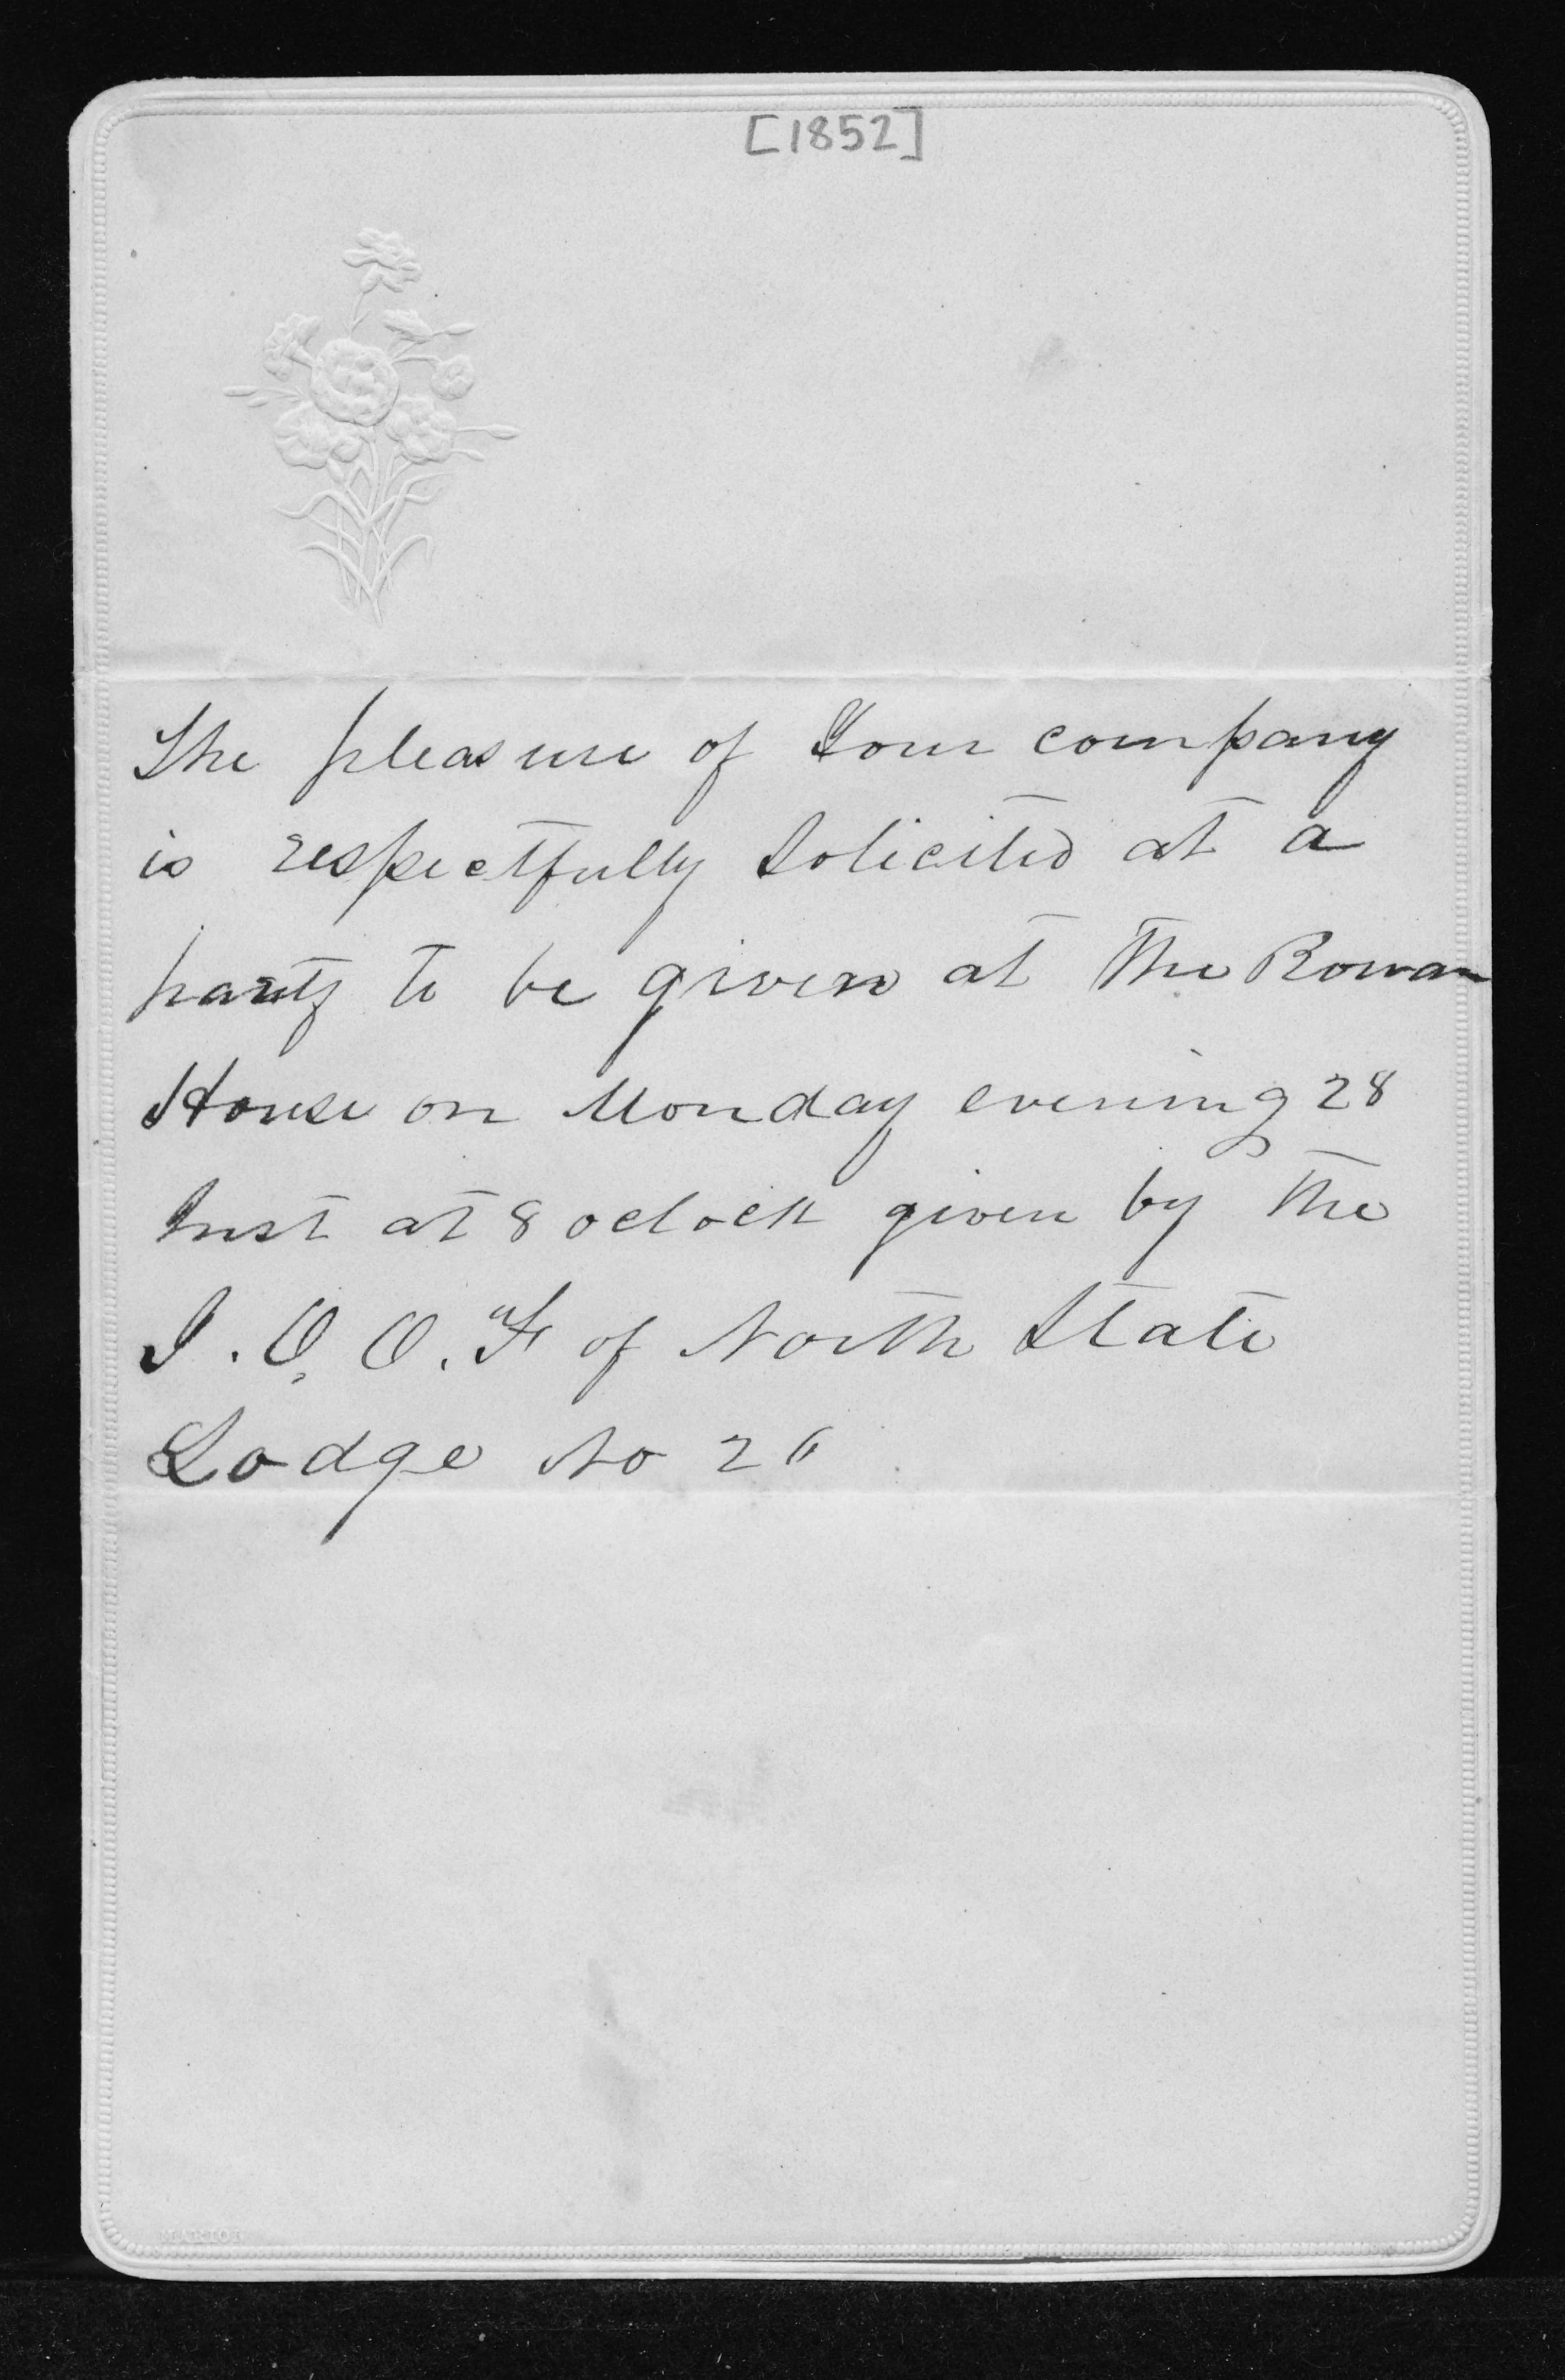 [1852]
The pleasure of Your company
is respectfully Solicited at a
party to be given at the Rowan
House on Monday evening 28
Inst at 8 oclock given by the
I. O. O. F of North State
Lodge No 26